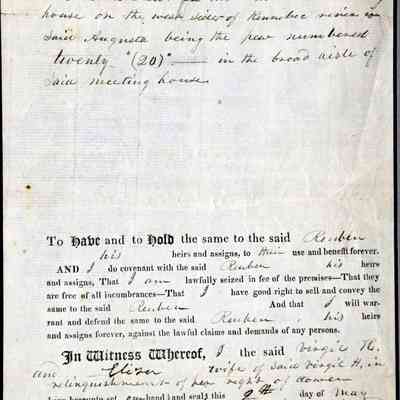 house on the west side of Kennebec river in
said Augusta being the pew numbered
twenty "(20)" — in the broad aisle of
said meeting house.
To Have and to Hold the same to the said Reuben
his heirs and assigns, to their use and benefit forever.
AND I do covenant with the said Reuben his heirs
and assigns, That I am lawfully seized in fee of the premises—That they
are free of all incumbrances—That I have good right to sell and convey the
same to the said Reuben And that I will war-
rant and defend the same to the said Reuben, his heirs
and assigns forever, against the lawful claims and demands of any persons.
In Witness Whereof, I the said Virgil H.
and Eliza wife of said Virgil H, in
relinquishment of her right of dower
have hereunto set our hand and seals this 9th day of May